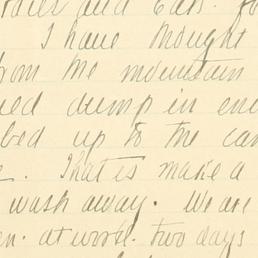 and Cats.
I have thought
from the mountain
dump in
up to the
. That is make a
wash away. We are
at work two days